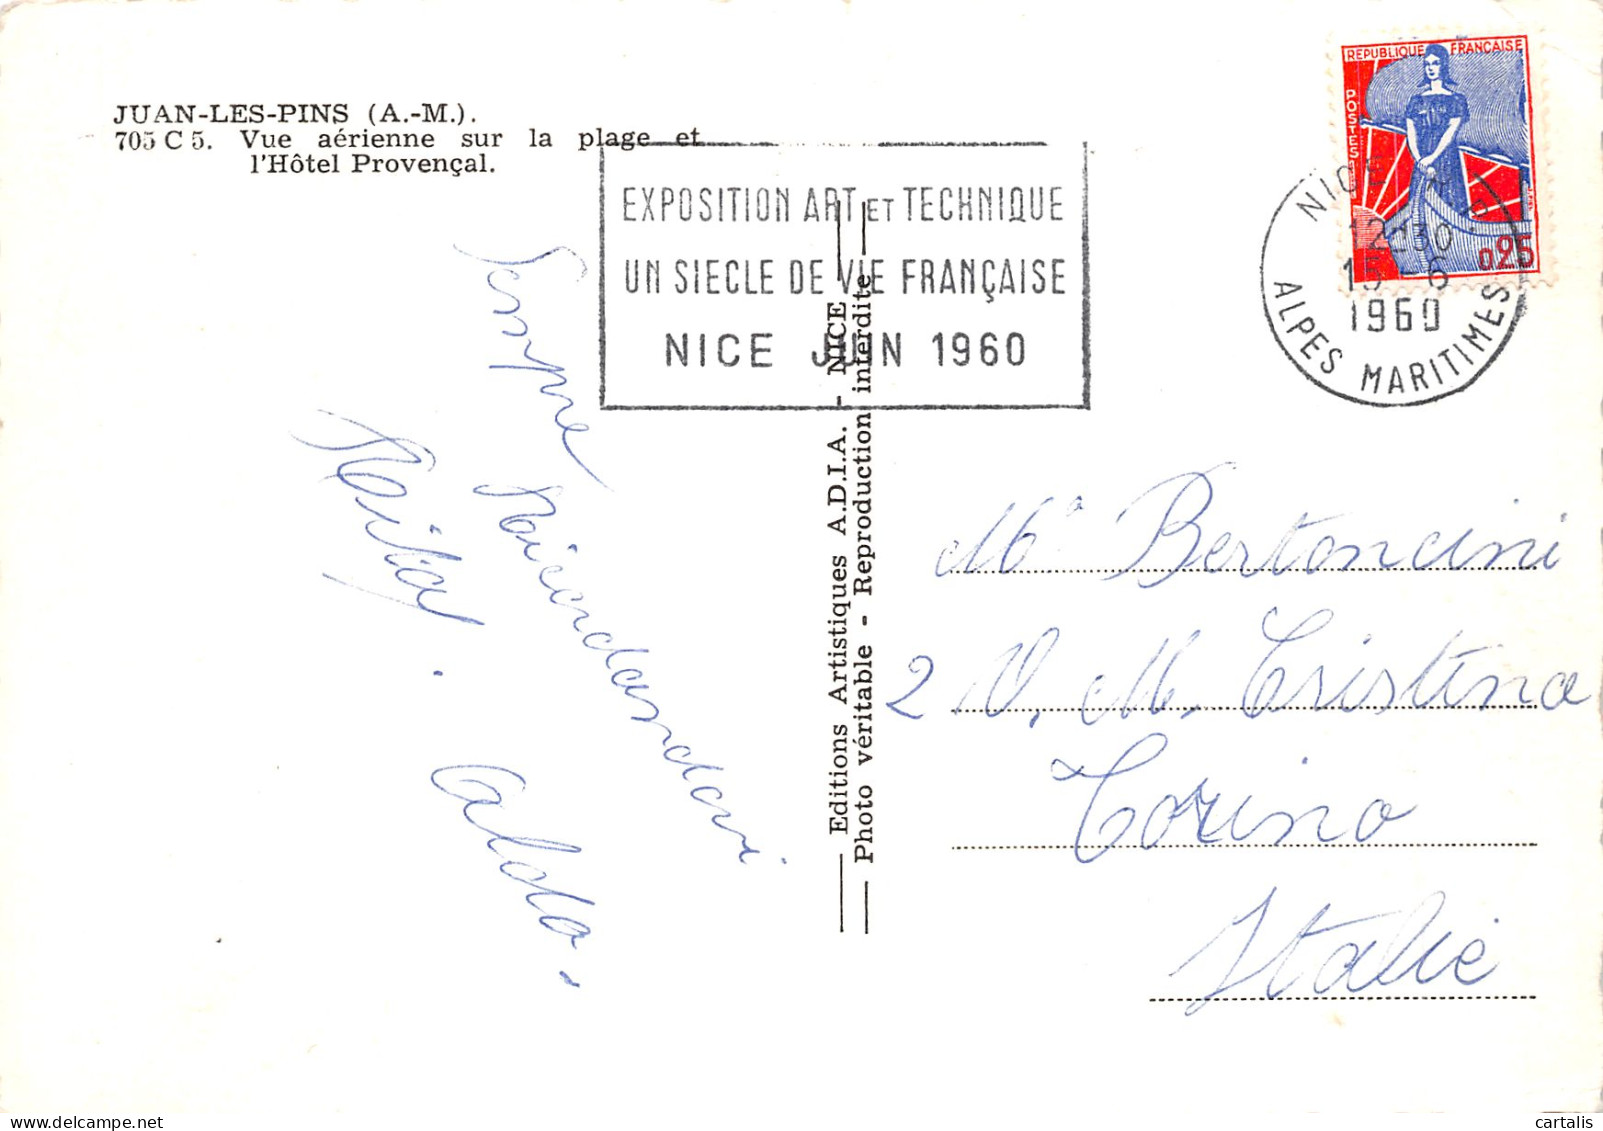 JUAN-LES-PINS (A.-M.).
705 C 5. Vue aérienne sur la plage et
l'Hôtel Provençal.
EXPOSITION ART ET TECHNIQUE
UN SIECLE DE VIE FRANÇAISE
NICE JUIN 1960
REPUBLIQUE FRANÇAISE
POSTES
0,25
NICE R.P.
12H30
15-6
1960
ALPES MARITIMES
Sempre
Ricordandovi
Rita.
Aldo.
Editions Artistiques A.D.I.A. - NICE
Photo véritable - Reproduction interdite
Mª Bertoncini
2 V. M. Cristina
Torino
Italie
cartalis